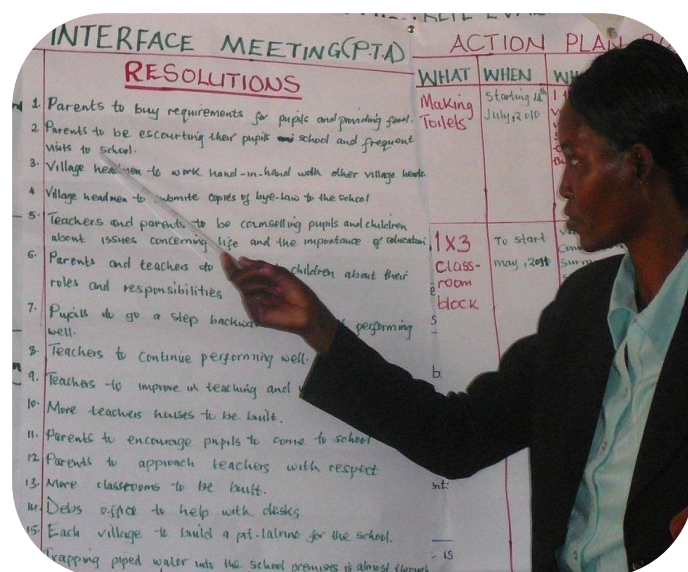 INTERFACE MEETING(P.T.A)
RESOLUTIONS
1. Parents to buy requirements for pupils and providing food.
2 Parents to be escourting their pupils school and frequent
visits to school.
3. Village headmen to work hand-in-hand with other village heads
4 Village headmen to submite copies of bye-law to the school
5. Teachers and parents to be counselling pupils and children
about issues concerning life and the importance of education
6. Parents and teachers to children about their
roles and responsibilities
7. Pupils to go a step performing
well.
8. Teachers to continue performing well.
9. Teachers to improve in teaching and
10. More teachers houses to be built.
11. Parents to encourage pupils to come to school
12 Parents to approach teachers with respect
13. More classrooms to be built.
14. Debs office to help with desks
15. Each village to build a pit-latrine for the school.
Trapping piped water into the school premises is almost through
ACTION PLAN
WHAT WHEN
Making
Toilets
Starting 12th
July, 2010
1X3
Class-
room
block
To start
may, 2010